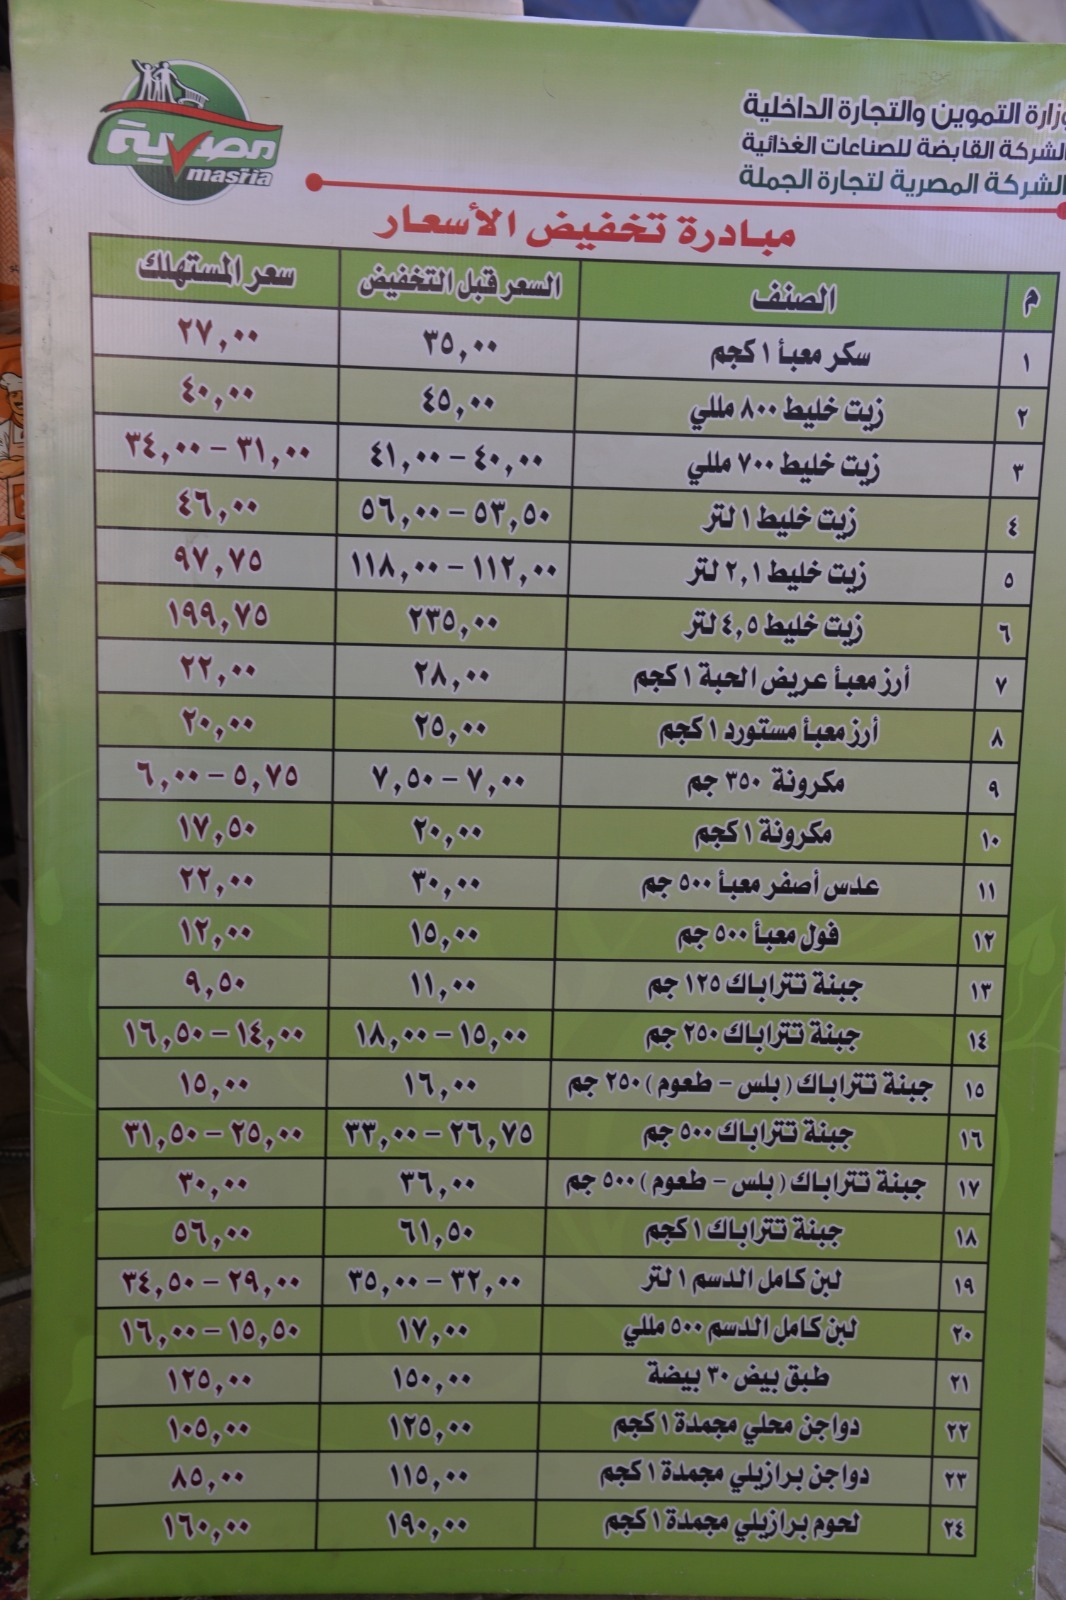 مصرية
masria
وزارة التموين والتجارة الداخلية
الشركة القابضة للصناعات الغذائية
الشركة المصرية لتجارة الجملة
مبادرة تخفيض الأسعار
م الصنف السعر قبل التخفيض سعر المستهلك
١ سكر معبأ ١ كجم ٣٥,٠٠ ٢٧,٠٠
٢ زيت خليط ٨٠٠ مللي ٤٥,٠٠ ٤٠,٠٠
٣ زيت خليط ٧٠٠ مللي ٤٠,٠٠ – ٤١,٠٠ ٣١,٠٠ – ٣٤,٠٠
٤ زيت خليط ١ لتر ٥٣,٥٠ – ٥٦,٠٠ ٤٦,٠٠
٥ زيت خليط ٢,١ لتر ١١٢,٠٠ – ١١٨,٠٠ ٩٧,٧٥
٦ زيت خليط ٤,٥ لتر ٢٣٥,٠٠ ١٩٩,٧٥
٧ أرز معبأ عريض الحبة ١ كجم ٢٨,٠٠ ٢٢,٠٠
٨ أرز معبأ مستورد ١ كجم ٢٥,٠٠ ٢٠,٠٠
٩ مكرونة ٣٥٠ جم ٧,٠٠ – ٧,٥٠ ٥,٧٥ – ٦,٠٠
١٠ مكرونة ١ كجم ٢٠,٠٠ ١٧,٥٠
١١ عدس أصفر معبأ ٥٠٠ جم ٣٠,٠٠ ٢٢,٠٠
١٢ فول معبأ ٥٠٠ جم ١٥,٠٠ ١٢,٠٠
١٣ جبنة تتراباك ١٢٥ جم ١١,٠٠ ٩,٥٠
١٤ جبنة تتراباك ٢٥٠ جم ١٥,٠٠ – ١٨,٠٠ ١٤,٠٠ – ١٦,٥٠
١٥ جبنة تتراباك (بلس - طعوم) ٢٥٠ جم ١٦,٠٠ ١٥,٠٠
١٦ جبنة تتراباك ٥٠٠ جم ٢٦,٧٥ – ٣٣,٠٠ ٢٥,٠٠ – ٣١,٥٠
١٧ جبنة تتراباك (بلس - طعوم) ٥٠٠ جم ٣٦,٠٠ ٣٠,٠٠
١٨ جبنة تتراباك ١ كجم ٦١,٥٠ ٥٦,٠٠
١٩ لبن كامل الدسم ١ لتر ٣٢,٠٠ – ٣٥,٠٠ ٢٩,٠٠ – ٣٤,٥٠
٢٠ لبن كامل الدسم ٥٠٠ مللي ١٧,٠٠ ١٥,٥٠ – ١٦,٠٠
٢١ طبق بيض ٣٠ بيضة ١٥٠,٠٠ ١٢٥,٠٠
٢٢ دواجن محلي مجمدة ١ كجم ١٢٥,٠٠ ١٠٥,٠٠
٢٣ دواجن برازيلي مجمدة ١ كجم ١١٥,٠٠ ٨٥,٠٠
٢٤ لحوم برازيلي مجمدة ١ كجم ١٩٠,٠٠ ١٦٠,٠٠